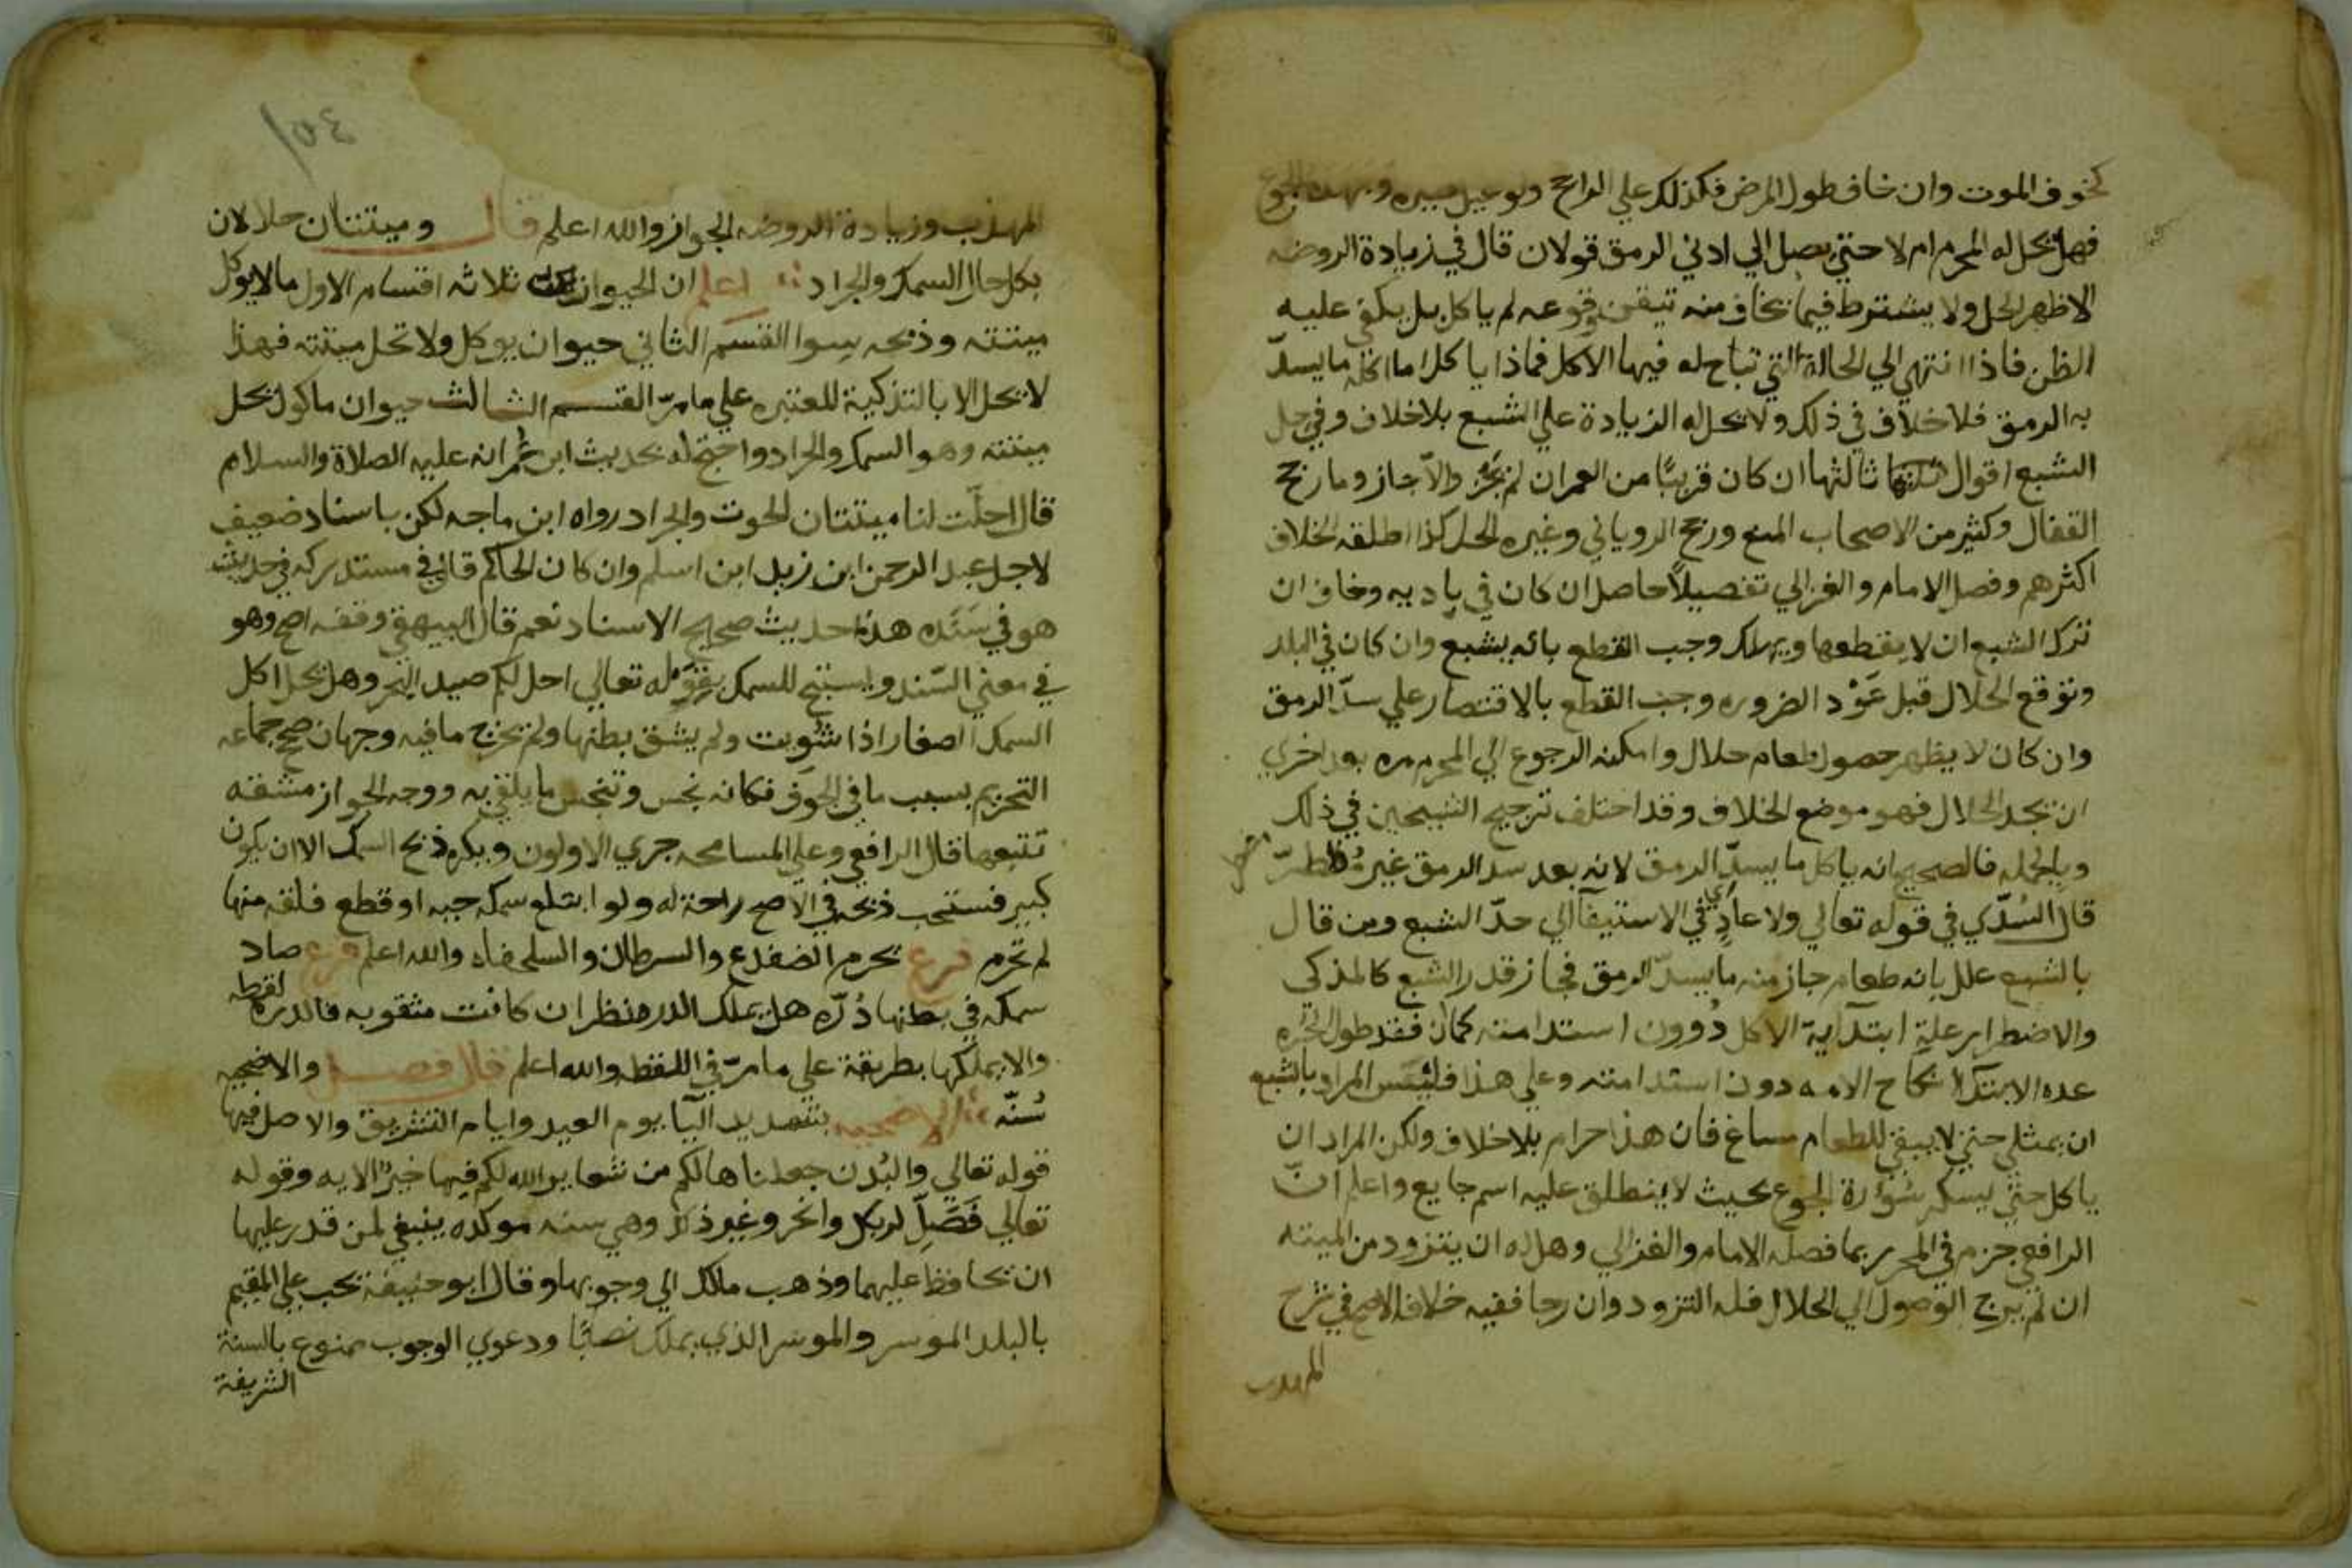 كخوف الموت وان خاف طول المرض فكذلك علي الراجح ولو عيل صبره وجهده الجوع
فهل يحل له المحرم ام لا حتي يصل الي ادني الرمق قولان قال في زيادة الروضه
الاظهر الحل ولا يشترط فيما يخاف منه تيقن وقوعه لم ياكل بل يكفي عليه
الظن فاذا انتهي الي الحالة التي تباح له فيها الاكل فماذا ياكل اما اكله ما يسدّ
به الرمق فلا خلاف في ذلك ولا يحل له الزيادة علي الشبع بلا خلاف وفي حل
الشبع اقوال ثالثها ان كان قريبًا من العمران لم يجز والاّ جاز وما رجح
القفال وكثير من الاصحاب المنع ورجح الروياني وغيره الحل كذا اطلقه الخلاف
اكثرهم وفصل الامام والغزالي تفصيلاً حاصل ان كان في باديه وخاف ان
ترك الشبع ان لا يقطعها ويهلك وجب القطع بانه يشبع وان كان في البلد
وتوقع الحلال قبل عَوْد الضروره وجب القطع بالاقتصار علي سدّ الرمق
وان كان لا يظهر حصول طعام حلال وامكنه الرجوع الي المحرم مره بعد اخري
ان يجد الحلال فهو موضع الخلاف وقد اختلف ترجيح الشيخين في ذلك
وبالجمله فالصحيح انه ياكل ما يسدّ الرمق لانه بعد سد الرمق غير مُضطرّ
قال السُدّي في قوله تعالي ولا عادٍ اي في الاستيفآ الي حدّ الشبع ومن قال
بالشبع علل بانه طعام جاز منه ما يسدّ الرمق فجاز قدر الشبع كالمذكي
والاضطرار علية ابتدآية الاكل دُوون استدامته كما ان فقد طول الحُرّه
عده الابتدآ نكاح الامه دون استدامته وعلي هذا فليس المراد بالشبع
ان يمثلي حتي لا يبقي للطعام مساغ فان هذا حرام بلا خلاف ولكن المراد ان
ياكل حتي يسكر سُوْرة الجوع بحيث لا ينطلق عليه اسم جايع واعلم انّ
الرافعي جزم في المحرر بما فصله الامام والغزالي وهل له ان يتزود من الميته
ان لم يرج الوصول الي الحلال فله التزود وان رجا ففيه خلاف الاصح في شرح
المهذب
١٥٤
المهذب وزيادة الروضه الجواز والله اعلم قال وميتتان حلالان
بكل حال السمك والجراد اعلم ان الحيوان ثلاثه اقسام الاول ما لا يوكل
ميتته وذبحه سوا القسم الثاني حيوان يوكل ولا تحل ميتته فهذا
لا يحل الا بالتذكية للعتبره علي ما مرّ القسم الثالث حيوان ماكول يحل
ميتته وهو السمك والجراد واحتج له بحديث ابن عُمر انه عليه الصلاة والسلام
قال احلّت لنا ميتتان الحوت والجراد رواه ابن ماجه لكن باسناد ضعيف
لاجل عبد الرحمن ابن زيد ابن اسلم وان كان الحاكم قال في مستدركه في حديث
هو في سَنَده هذا حديث صحيح الاسناد نعم قال البيهقي وقفه اصح وهو
في معني السَّند ويستنج للسمك بقوله تعالي احل لكم صيد البحر وهل يحل اكل
السمك اصغار اذا شُويت ولم يشق بطنها ولم يخرج ما فيه وجهان صحح جماعه
التحريم بسبب ما في الجوف فكانه نجس وتنجس ما يلقي به ووجه الجواز مشقه
تتبعها قال الرافعي وعلي المسامحه جري الاولون ويكره ذبح السمك الا ان يكون
كبير فستحب ذبحه في الاصح راحة له ولو ابتلع سمكه حيه او قطع فلقه منها
لم تحرم فرع يحرم الضفدع والسرطان والسلحفاه والله اعلم فرع صاد
سمكه في بطنها دُرّه هل يملك الدره ينظر ان كانت مثقوبه فالدره لقطه
والا يملكها بطريقة علي ما مرّ في اللقطه والله اعلم قال فصل والاضحيه
سُنّه الاضحيه بتشديد اليآ يوم العيد وايام التشريق والاصل فيها
قوله تعالي والبُدن جعلناها لكم من شعاير الله لكم فيها خيرٌ الايه وقوله
تعالي فَصَلِّ لربك وانحر وغير ذلك وهي سنه موكده ينبغي لمن قدر عليها
ان يحافظ عليهما وذهب مالك الي وجوبها وقال ابو حنيفة تجب علي المقيم
بالبلد الموسر والموسر الذي يملك نصابًا ودعوي الوجوب ممنوع بالسنة
الشريفة